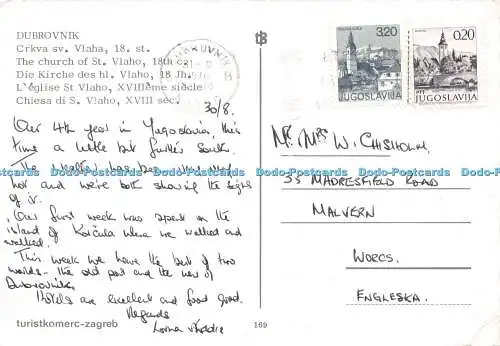 DUBROVNIK
Crkva sv. Vlaha, 18. st.
The church of St. Vlaho, 18th c.
Die Kirche des hl. Vlaho, 18 Jh.
L'église St Vlaho, XVIIIème siècle
Chiesa di S. Vlaho, XVIII sec.
30/8.
Our 4th year in Yugoslavia, this
time a little bit further South.
The weather has been very very
hot and we're both showing the signs
of it.
Our first week was spent on the
island of Korčula where we walked and
walked.
This week we have the best of two
worlds - the old port and the new of
Dubrovnik.
Hotels are excellent and food good.
Regards
Lorna
turistkomerc-zagreb
169
DUBROVNIK
3,20
JUGOSLAVIJA
0,20
JUGOSLAVIJA
Mr. Mrs W. Chisholm.
33 Madresfield Road
Malvern
Worcs.
Engleska.
www.Oado-Postcards.com